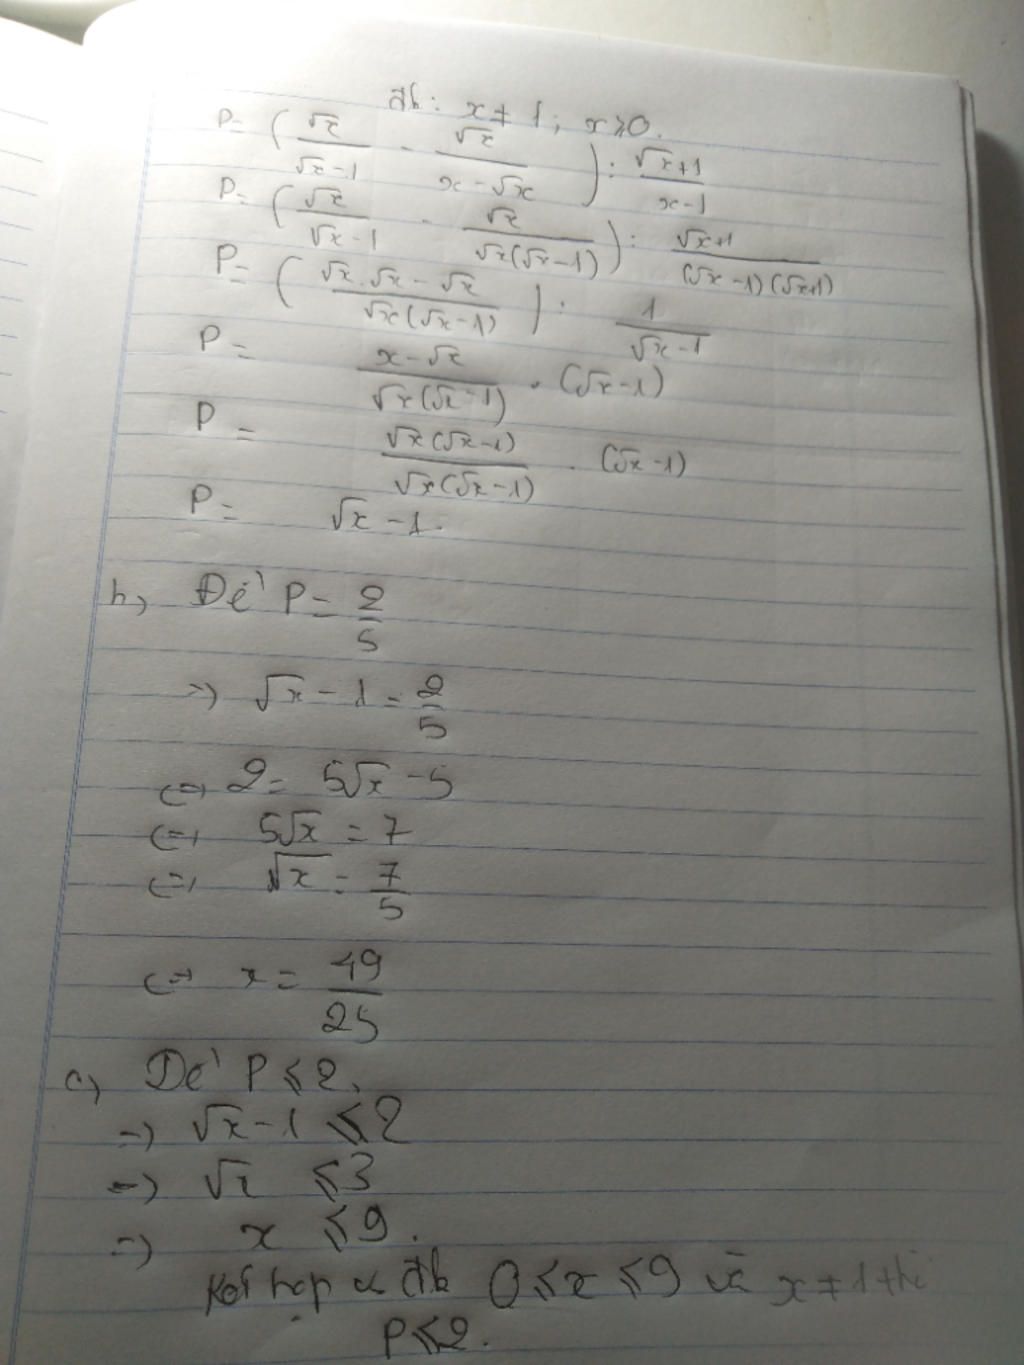 đk: x ≠ 1; x ≥ 0.
P = (√x/(√x-1) - √x/(x-√x)) : (√x+1)/(x-1)
P = (√x/(√x-1) - √x/(√x(√x-1))) : (√x+1)/((√x-1)(√x+1))
P = ((√x.√x-√x)/(√x(√x-1))) : 1/(√x-1)
P = (x-√x)/(√x(√x-1)) . (√x-1)
P = (√x(√x-1))/(√x(√x-1)) . (√x-1)
P = √x-1.
b, Để P = 2/5
=> √x-1 = 2/5
<=> 2 = 5√x-5
<=> 5√x = 7
<=> √x = 7/5
<=> x = 49/25
c, Để P ≤ 2,
=> √x-1 ≤ 2
=> √x ≤ 3
=> x ≤ 9.
Kết hợp đk 0 ≤ x ≤ 9 và x ≠ 1 thì
P ≤ 2.